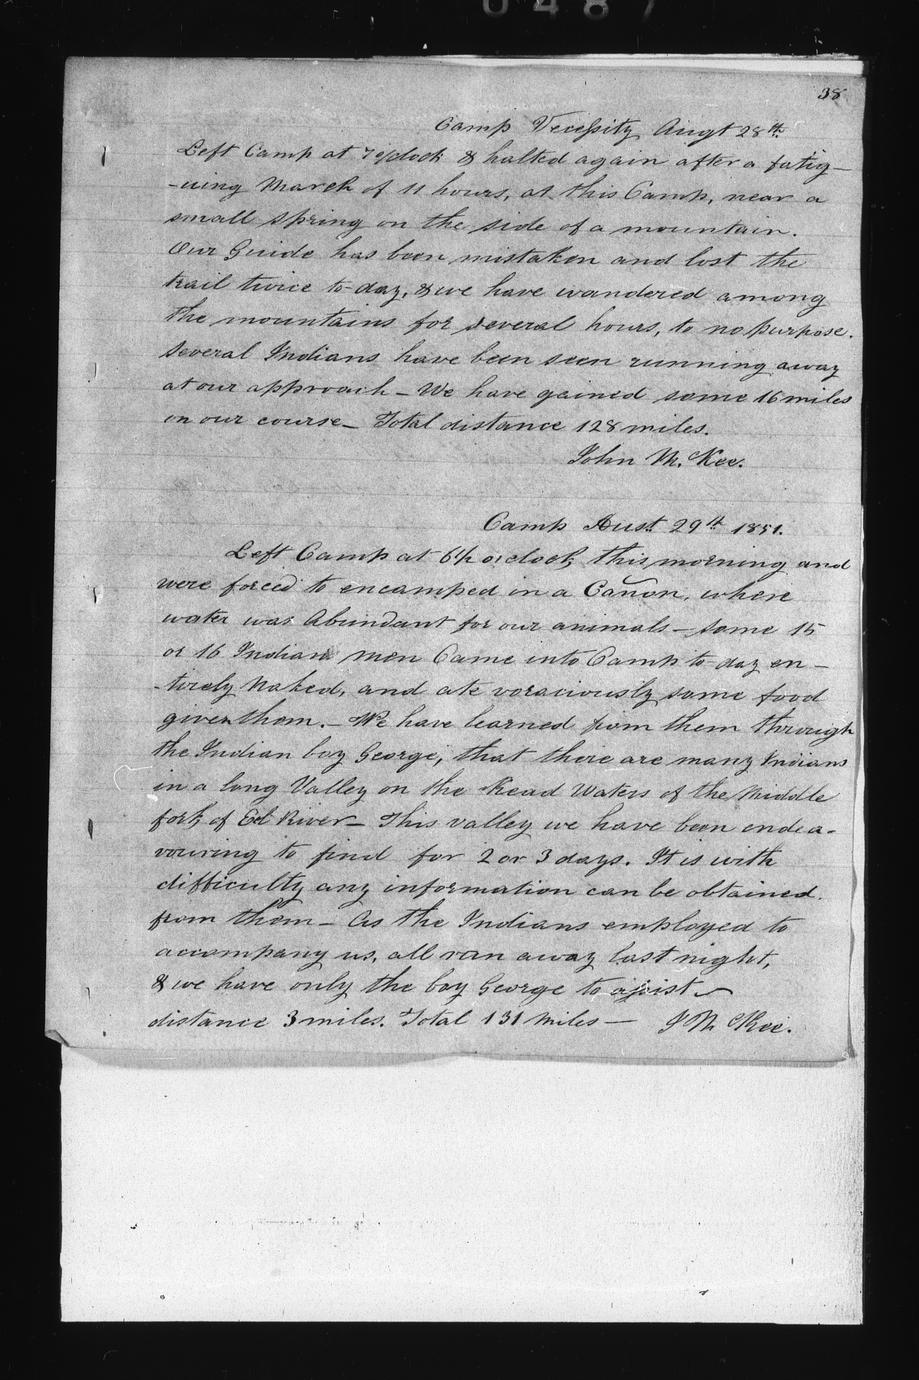 0487
38
Camp Necessity Augt 28th
Left Camp at 7 o'clock & halted again after a fatig-
-uing March of 11 hours, at this Camp, near a
small spring on the side of a mountain.
Our Guide has been mistaken and lost the
trail twice to-day, & we have wandered among
the mountains for several hours, to no purpose.
Several Indians have been seen running away
at our approach - We have gained some 16 miles
on our course - Total distance 128 miles.
John M. Kee.
Camp Aust. 29th 1851.
Left Camp at 6½ o'clock this morning and
were forced to encamped in a Cañon, where
water was Abundant for our animals - some 15
or 16 Indian men Came into Camp to-day en-
-tirely Naked, and ate voraciously some food
given them. We have learned from them through
the Indian boy George, that there are many Indians
in a long Valley on the Head Waters of the Middle
fork of Eel River - This valley we have been endea-
vouring to find for 2 or 3 days. It is with
difficulty any information can be obtained
from them - As the Indians employed to
accompany us, all ran away last night,
& we have only the boy George to assist -
distance 3 miles. Total 131 Miles - J M Kee.